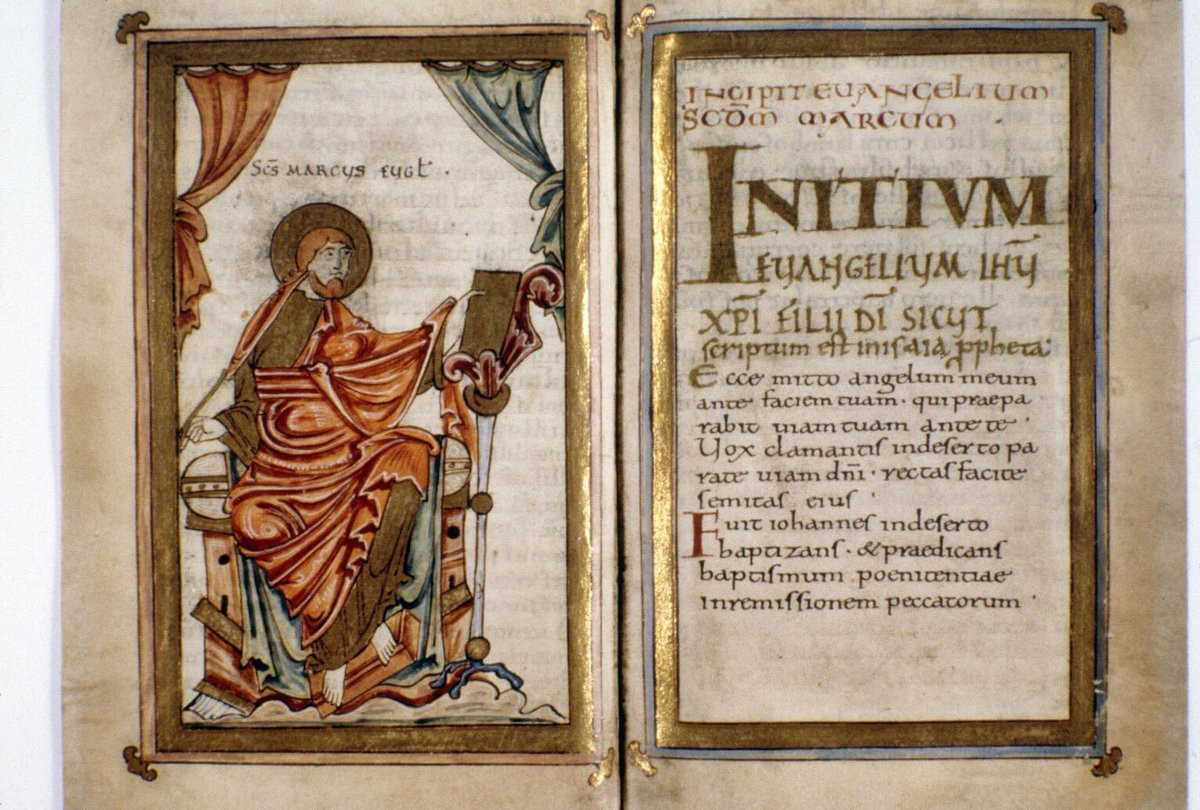 Scs MARCUS EUGL̄ ·
INCIPIT EUANGELIUM
SCD̄M MARCUM ·
INITIUM
EUANGELIUM IHŪ
XP̄I FILII DĪ SICUT
scriptum est in isaia ppheta:
Ecce mitto angelum meum
ante faciem tuam · qui praepa
rabit uiam tuam ante te ·
Uox clamantis indeserto pa
rate uiam dn̄i · rectas facite
semitas eius ·
Fuit iohannes indeserto
baptizans · & praedicans
baptismum poenitentiae
Inremissionem peccatorum ·